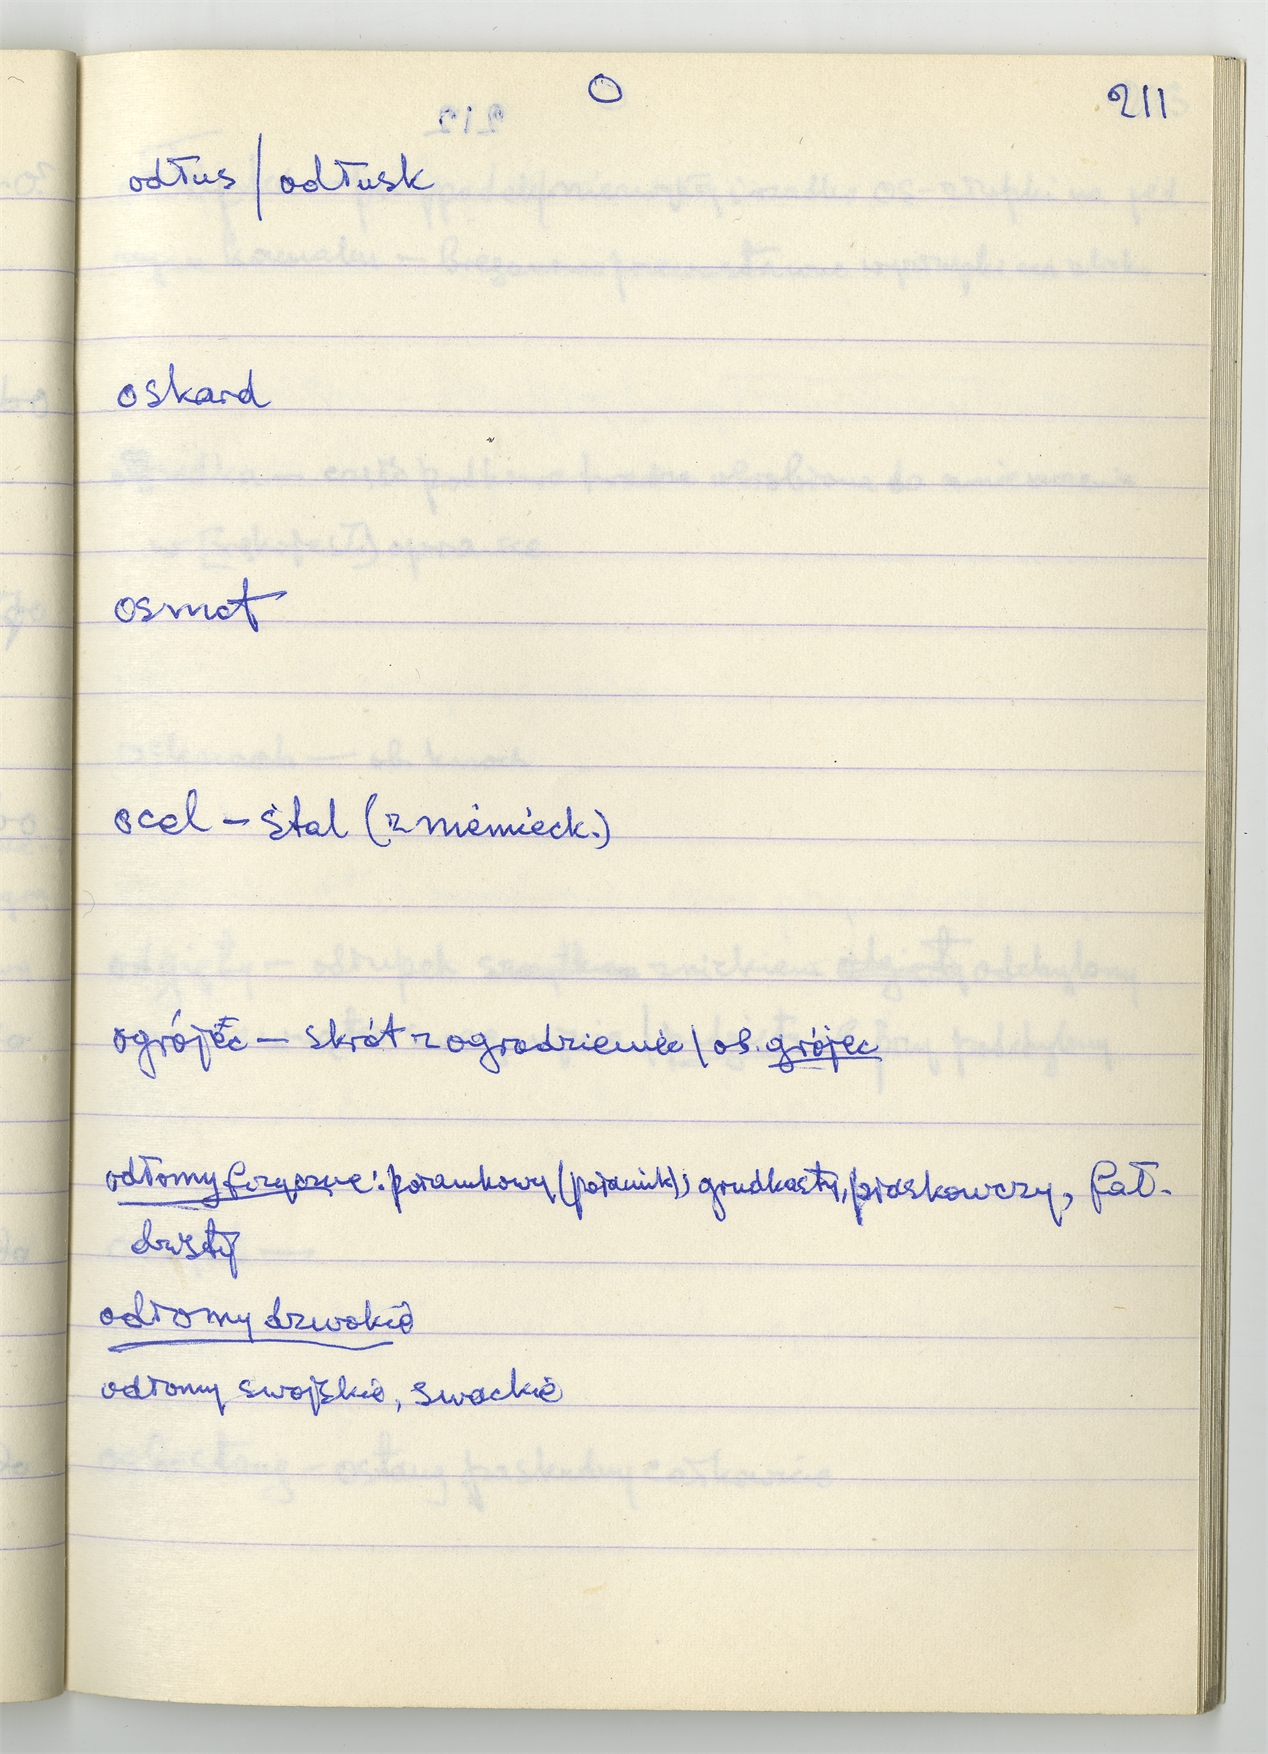 O 211
odłus / odłusk
oskard
osmot
ocel – stal (z niemieck.)
ogrójec – skrót z ogrodzienié / ob. grójec
odłomy fizyczne: poramkowy (poramik); grudkasty, piaskowczy, fał-
dzisty
odłomy dzwokié
odłomy swojskié, swackié